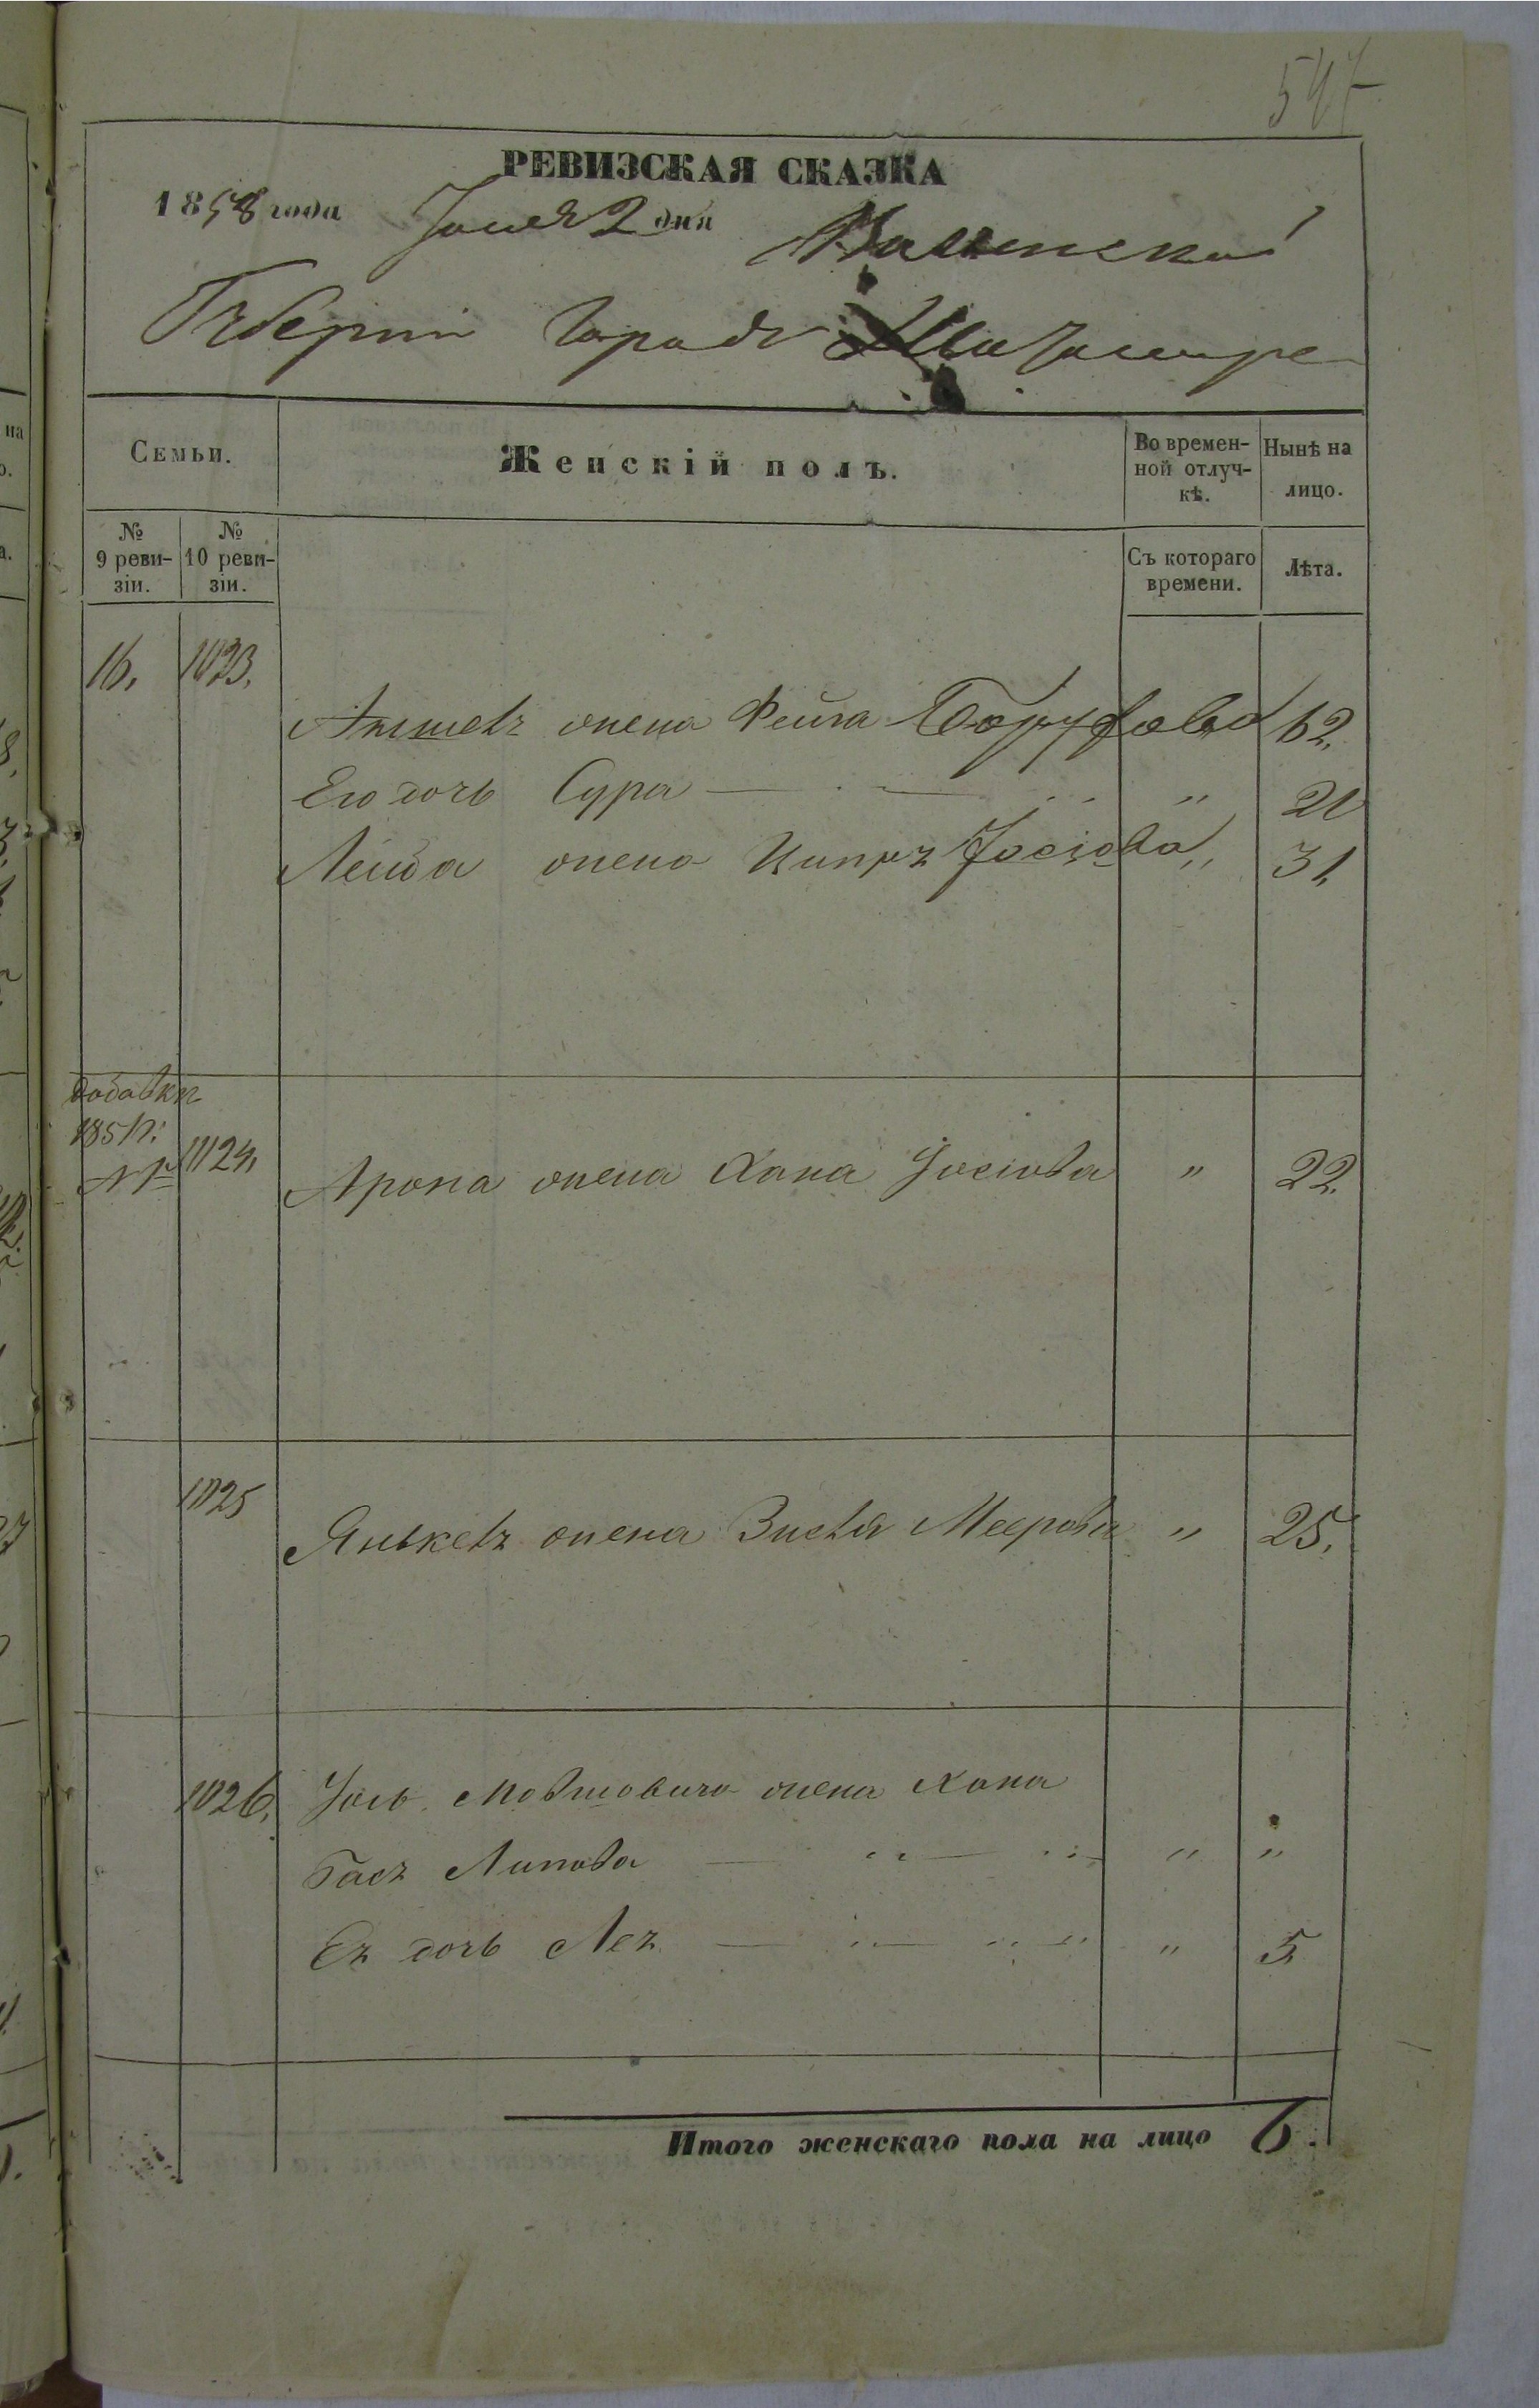 РЕВИЗСКАЯ СКАЗКА
1858 года Іюня 2 дня Волынской
Губерніи Городъ Житомиръ
Семьи. Женскій полъ. Во времен-ной отлуч-кѣ. Нынѣ на лицо.
№ 9 реви-зіи. № 10 реви-зіи. Съ котораго времени. Лѣта.
16, 1023,
жена Фейга Борухова 62,
Его дочь Сура " 20
Лейба жена Ципра Іосіова " 31,
добавки
1851 г:
1024, Арона жена Хана Іосіова " 22,
1025 Янкеля жена Зисля Меерова " 25,
1026, Мовшовича жена Хана
Бася Липова " "
Ея дочь Лея " 5
Итого женскаго пола на лицо 6.